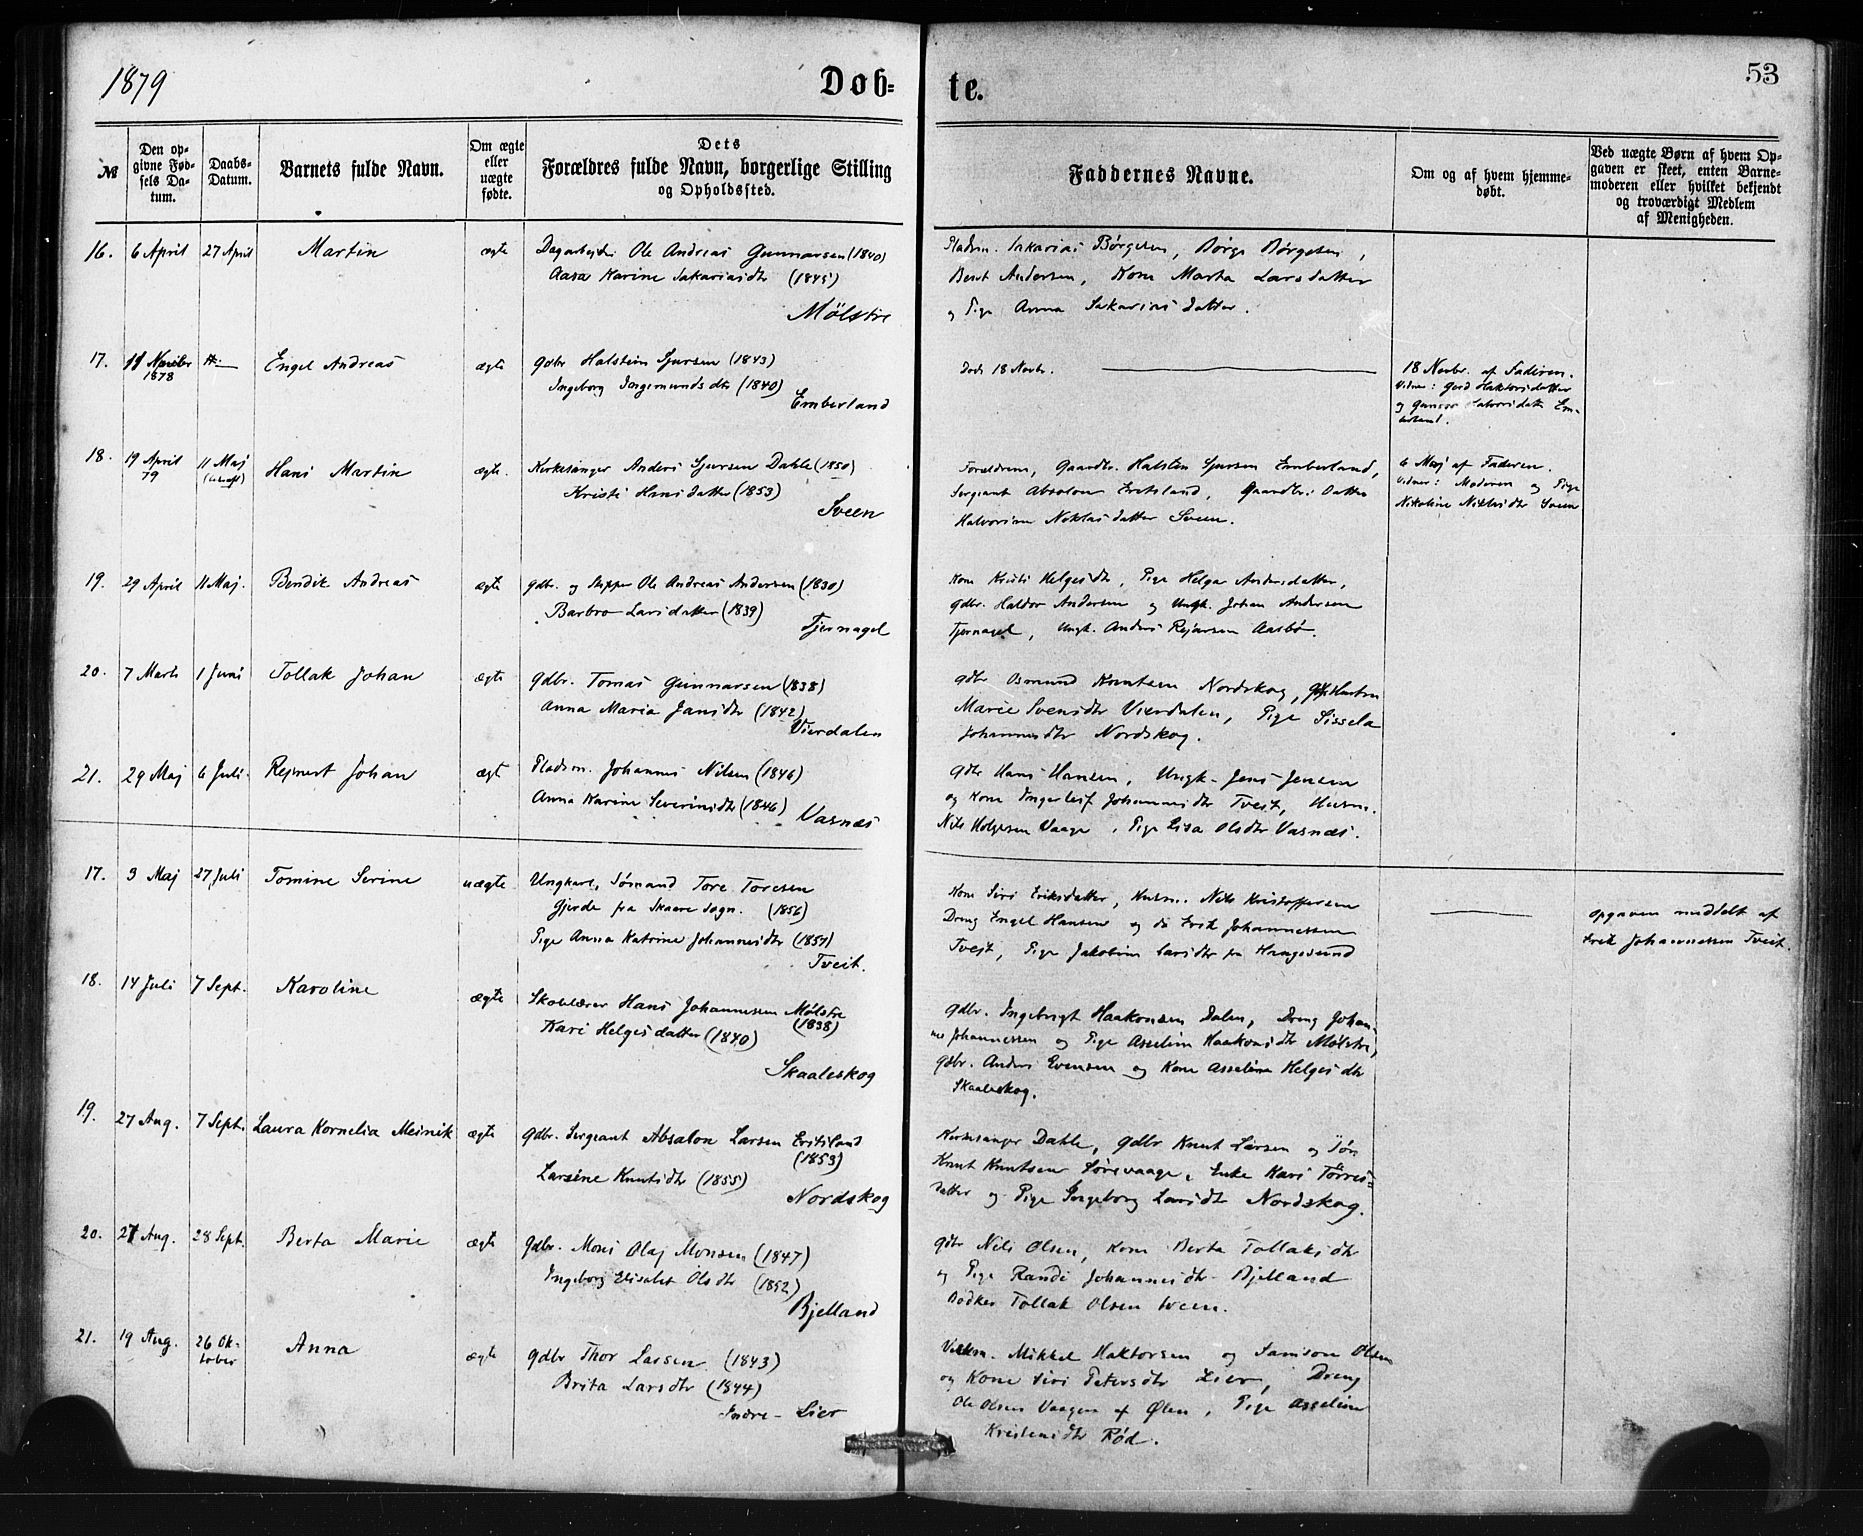 1879
Døb-
te.
53
№
Den op-
givne Fød-
sels Da-
tum.
Daabs-
Datum.
Barnets fulde Navn.
Om ægte
eller
uægte
fødte.
Dets
Forældres fulde Navn, borgerlige Stilling
og Opholdssted.
Faddernes Navne.
Om og af hvem hjemme-
døbt.
Ved uægte Børn af hvem Op-
gaven er skeet, enten Barne-
moderen eller hvilket bekjendt
og troværdigt Medlem
af Menigheden.
16. 6 April 27 April Martin ægte Dagarbejd. Ole Andreas Gunnarsen (1840)
Aasa Karine Sakariasdtr (1845)
Mölstre
Pladsm. Sakarias Børgesen, Børge Børgesen,
Berit Andersen, Kone Marta Larsdatter
og Pige Anna Sakariasdatter.
17. 11 Novbr
1878
Engel Andreas ægte Gdbr Halstein Sjursen (1843)
Ingeborg Ingemundsdtr (1840)
Emberland
Døde 18 Novbr.
18 Novbr. af Faderen.
Vidner: Gerd Haktorsdatter
og
18. 19 April
79
11 Maj
Hans Martin ægte. Kirkesanger Anders Sjursen Dahle (1850)
Kristi Hansdatter (1853)
Sveen
Forældrene, Gaardbr. Halsten Sjursen Emberland,
Sergeant Absolon Eritsland, Gaardbr. Datter
Halvorine Niklasdatter Sveen.
6 Maj af Faderen.
Vidner: Moderen og Pige
Nikoline Niklasdtr Sveen
19. 29 April 11 Maj. Bendik Andreas ægte Gdbr. og Skipper Ole Andreas Andersen (1830)
Barbro Larsdatter (1839)
Tjernagel
Kone Kristi Helgesdtr, Pige Helga Andersdatter,
Gdbr. Haldor Andersen og Ungk. Johan Andersen
Tjernagel, Ungk. Anders Rejarsen Aasbø.
20. 7 Marts 1 Juni Tollak Johan ægte Gdbr. Tomas Gunnarsen (1838)
Anna Maria Jansdtr (1842)
Vierdalen
Gdbr Osmund Knutsen Nordskog, Hustru
Marie Svensdtr Vierdalen, Pige Sissela
Johannesdtr Nordskog.
21. 29 Maj 6 Juli. Rejnert Johan ægt Pladsm. Johannes Nilsen (1846)
Anna Karine Severinsdtr (1846)
Vasnæs
Gdbr Hans Hansen, Ungk. Jens Jensen
og Kone Ingerleif Johannesdtr Tveit, Husm.
Nils Holgersen Vaage, Pige Lisa Olsdtr Vasnæs.
17. 3 Maj 27 Juli Tomine Serine uægte Ungkarl, Sømand Tore Toresen
Gjerde fra Skaare Sogn. (1856)
Pige Anna Katrine Johannesdtr (1857)
Tveit.
Kone Siri Eriksdatter, Husm. Nils Kristoffersen
Dreng Engel Hansen og do Erik Johannessen
Tveit, Pige Jakobine Larsdtr fra Haugesund
Opgaven meddelt af
Erik Johannessen Tveit.
18. 14 Juli 7 Sept. Karoline ægte Skolelærer Hans Johannessen Mölstre
(1838)
Kari Helgesdatter (1840)
Skaaleskog
Gdbr. Ingebrigt Haakonsen Dalen, Dreng Johan-
nes Johannessen og Pige Asseline Haakonsdtr Mölstre,
Gdbr. Anders Evensen og Kone Asseline Helgesdtr
Skaaleskog.
19. 27 Aug. 7 Sept. Laura Kornelia Meinik ægte Gdbr. Sergeant Absalon Larsen Eritsland
(1853)
Larsine Knutsdtr (1855)
Nordskog
Kirkesanger Dahle, Gdbr Knut Larsen og Søn
Knut Knutsen Sørevaage, Enke Kari Tørres-
datter og Pige Ingeborg Larsdtr Nordskog.
20. 27 Aug. 28 Sept. Berta Marie ægte Gdbr. Mons Olaj Monsen (1847)
Ingeborg Elisabet Olsdtr (1852)
Bjelland
Gdbr Nils Olsen, Kone Berta Tollaksdtr
og Pige Randi Johannesdtr Bjelland
Bødker Tollak Olsen Sveen.
21. 19 Aug. 26 Ok-
tober
Anna ægte Gdbr Thor Larsen (1843)
Brita Larsdtr (1844)
Indre-Lier
Mikkel Haktorsen og Samson Olsen
og Kone Siri Petersdtr Lier, Dreng
Ole Olsen Vaagen af Ølen, Pige Asseline
Kristensdtr Rød.